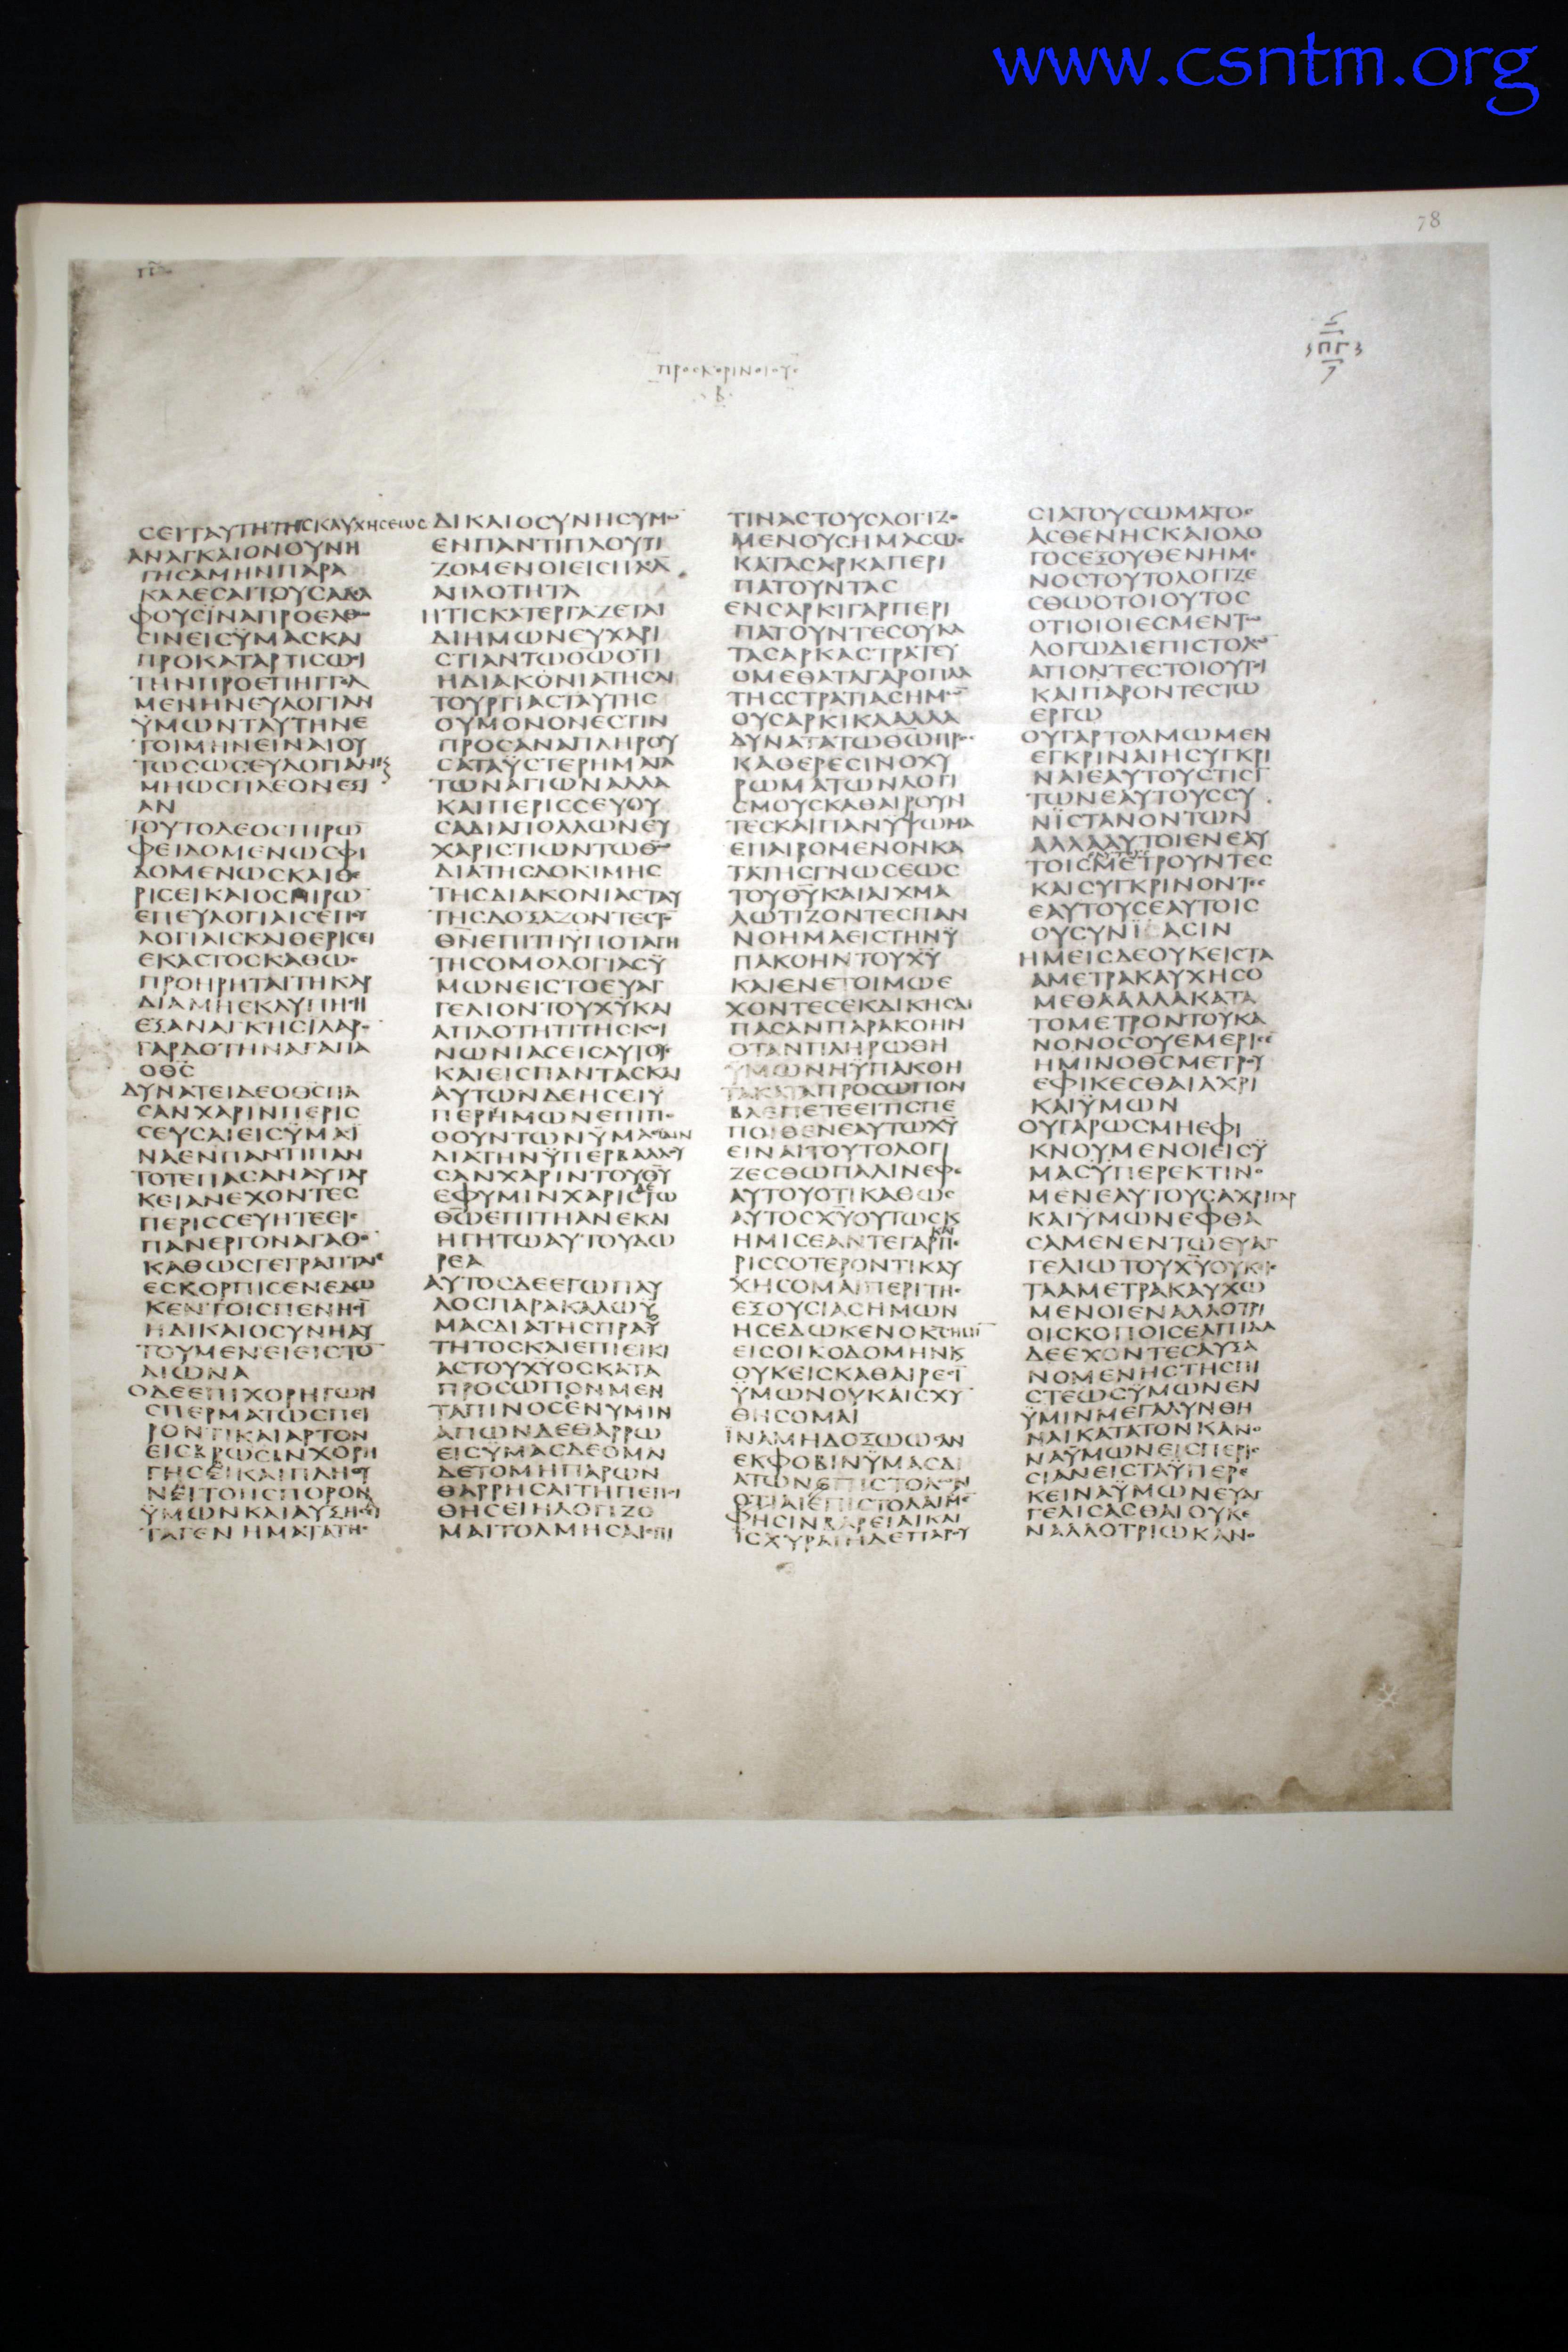 www.csntm.org
78
ΠΓ
ΠΡΟΣ ΚΟΡΙΝΘΙΟΥΣ
Β
ϹΕΙΤΑΥΤΗΤΗϹΚΑΥΧΗϹΕΩϹ
ΑΝΑΓΚΑΙΟΝΟΥΝΗ
ΓΗϹΑΜΗΝΠΑΡΑ
ΚΑΛΕϹΑΙΤΟΥϹΑΔΕΛ
ΦΟΥϹΪΝΑΠΡΟΕΛΘΩ
ϹΙΝΕΙϹΫΜΑϹΚΑΙ
ΠΡΟΚΑΤΑΡΤΙϹΩϹΙ
ΤΗΝΠΡΟΕΠΗΓΓΕΛ
ΜΕΝΗΝΕΥΛΟΓΙΑΝ
ΫΜΩΝΤΑΥΤΗΝΕ
ΤΟΙΜΗΝΕΙΝΑΙΟΥ
ΤΩϹΩϹΕΥΛΟΓΙΑΝ
ΜΗΩϹΠΛΕΟΝΕΞΙ
ΑΝ
ΤΟΥΤΟΔΕΟϹΠΙΡΩ
ΦΕΙΔΟΜΕΝΩϹΦΙ
ΔΟΜΕΝΩϹΚΑΙΘΕ
ΡΙϹΕΙΚΑΙΟϹΠΙΡΩ
ΕΠΕΥΛΟΓΙΑΙϹΕΠΕΥ
ΛΟΓΙΑΙϹΚΑΙΘΕΡΙϹΕΙ
ΕΚΑϹΤΟϹΚΑΘΩϹ
ΠΡΟΗΡΗΤΑΙΤΗΚΑΡ
ΔΙΑΜΗΕΚΛΥΠΗϹΗ
ΕΞΑΝΑΓΚΗϹΪΛΑΡΟ
ΓΑΡΔΟΤΗΝΑΓΑΠΑ
ΟΘϹ
ΔΥΝΑΤΕΙΔΕΟΘϹΠΑ
ϹΑΝΧΑΡΙΝΠΕΡΙϹ
ϹΕΥϹΑΙΕΙϹΫΜΑϹΪ
ΝΑΕΝΠΑΝΤΙΠΑΝ
ΤΟΤΕΠΑϹΑΝΑΥΤΑΡ
ΚΕΙΑΝΕΧΟΝΤΕϹ
ΠΕΡΙϹϹΕΥΗΤΕΕΙϹ
ΠΑΝΕΡΓΟΝΑΓΑΘΟ
ΚΑΘΩϹΓΕΓΡΑΠΤΑΙ
ΕϹΚΟΡΠΙϹΕΝΕΔΩ
ΚΕΝΤΟΙϹΠΕΝΗϹΙ
ΗΔΙΚΑΙΟϹΥΝΗΑΥ
ΤΟΥΜΕΝΕΙΕΙϹΤΟ
ΑΙΩΝΑ
ΟΔΕΕΠΙΧΟΡΗΓΩΝ
ϹΠΕΡΜΑΤΩϹΠΕΙ
ΡΟΝΤΙΚΑΙΑΡΤΟΝ
ΕΙϹΒΡΩϹΙΝΧΟΡΗ
ΓΗϹΕΙΚΑΙΠΛΗΘΥ
ΝΕΙΤΟΝϹΠΟΡΟΝ
ΫΜΩΝΚΑΙΑΥΞΗϹΕΙ
ΤΑΓΕΝΗΜΑΤΑΤΗϹ
ΔΙΚΑΙΟϹΥΝΗϹΥΜΩ
ΕΝΠΑΝΤΙΠΛΟΥΤΙ
ΖΟΜΕΝΟΙΕΙϹΠΑϹΑ
ΑΠΛΟΤΗΤΑ
ΗΤΙϹΚΑΤΕΡΓΑΖΕΤΑΙ
ΔΙΗΜΩΝΕΥΧΑΡΙ
ϹΤΙΑΝΤΩΘΩΟΤΙ
ΗΔΙΑΚΟΝΙΑΤΗϹΛΙ
ΤΟΥΡΓΙΑϹΤΑΥΤΗϹ
ΟΥΜΟΝΟΝΕϹΤΙΝ
ΠΡΟϹΑΝΑΠΛΗΡΟΥ
ϹΑΤΑΫϹΤΕΡΗΜΑΤΑ
ΤΩΝΑΓΙΩΝΑΛΛΑ
ΚΑΙΠΕΡΙϹϹΕΥΟΥ
ϹΑΔΙΑΠΟΛΛΩΝΕΥ
ΧΑΡΙϹΤΙΩΝΤΩΘΩ
ΔΙΑΤΗϹΔΟΚΙΜΗϹ
ΤΗϹΔΙΑΚΟΝΙΑϹΤΑΥ
ΤΗϹΔΟΞΑΖΟΝΤΕϹΤΟ
ΘΝΕΠΙΤΗΫΠΟΤΑΓΗ
ΤΗϹΟΜΟΛΟΓΙΑϹΫ
ΜΩΝΕΙϹΤΟΕΥΑΓ
ΓΕΛΙΟΝΤΟΥΧΥΚΑΙ
ΑΠΛΟΤΗΤΙΤΗϹΚΟΙ
ΝΩΝΙΑϹΕΙϹΑΥΤΟΥϹ
ΚΑΙΕΙϹΠΑΝΤΑϹΚΑΙ
ΑΥΤΩΝΔΕΗϹΕΙΫ
ΠΕΡΗΜΩΝΕΠΙΠΟ
ΘΟΥΝΤΩΝΫΜΑϹΙΔΙΝ
ΔΙΑΤΗΝΫΠΕΡΒΑΛΛΟΥ
ϹΑΝΧΑΡΙΝΤΟΥΘΥ
ΕΦΥΜΙΝΧΑΡΙϹΤΩ
ΘΩΕΠΙΤΗΑΝΕΚΔΙ
ΗΓΗΤΩΑΥΤΟΥΔΩ
ΡΕΑ
ΑΥΤΟϹΔΕΕΓΩΠΑΥ
ΛΟϹΠΑΡΑΚΑΛΩΫ
ΜΑϹΔΙΑΤΗϹΠΡΑΫ
ΤΗΤΟϹΚΑΙΕΠΙΕΙΚΙ
ΑϹΤΟΥΧΥΟϹΚΑΤΑ
ΠΡΟϹΩΠΟΝΜΕΝ
ΤΑΠΙΝΟϹΕΝΥΜΙΝ
ΑΠΩΝΔΕΘΑΡΡΩ
ΕΙϹΫΜΑϹΔΕΟΜΑΙ
ΔΕΤΟΜΗΠΑΡΩΝ
ΘΑΡΡΗϹΑΙΤΗΠΕΠΟΙ
ΘΗϹΕΙΗΛΟΓΙΖΟ
ΜΑΙΤΟΛΜΗϹΑΙΕΠΙ
ΤΙΝΑϹΤΟΥϹΛΟΓΙΖΟ
ΜΕΝΟΥϹΗΜΑϹΩϹ
ΚΑΤΑϹΑΡΚΑΠΕΡΙ
ΠΑΤΟΥΝΤΑϹ
ΕΝϹΑΡΚΙΓΑΡΠΕΡΙ
ΠΑΤΟΥΝΤΕϹΟΥΚΑ
ΤΑϹΑΡΚΑϹΤΡΑΤΕΥ
ΟΜΕΘΑΤΑΓΑΡΟΠΛΑ
ΤΗϹϹΤΡΑΤΙΑϹΗΜΩ
ΟΥϹΑΡΚΙΚΑΑΛΛΑ
ΔΥΝΑΤΑΤΩΘΩΠΡΟϹ
ΚΑΘΕΡΕϹΙΝΟΧΥ
ΡΩΜΑΤΩΝΛΟΓΙ
ϹΜΟΥϹΚΑΘΑΙΡΟΥΝ
ΤΕϹΚΑΙΠΑΝΥΨΩΜΑ
ΕΠΑΙΡΟΜΕΝΟΝΚΑ
ΤΑΤΗϹΓΝΩϹΕΩϹ
ΤΟΥΘΥΚΑΙΑΙΧΜΑ
ΛΩΤΙΖΟΝΤΕϹΠΑΝ
ΝΟΗΜΑΕΙϹΤΗΝΫ
ΠΑΚΟΗΝΤΟΥΧΥ
ΚΑΙΕΝΕΤΟΙΜΩΕ
ΧΟΝΤΕϹΕΚΔΙΚΗϹΑΙ
ΠΑϹΑΝΠΑΡΑΚΟΗΝ
ΟΤΑΝΠΛΗΡΩΘΗ
ΫΜΩΝΗΫΠΑΚΟΗ
ΤΑΚΑΤΑΠΡΟϹΩΠΟΝ
ΒΛΕΠΕΤΕΕΙΤΙϹΠΕ
ΠΟΙΘΕΝΕΑΥΤΩΧΥ
ΕΙΝΑΙΤΟΥΤΟΛΟΓΙ
ΖΕϹΘΩΠΑΛΙΝΕΦΕ
ΑΥΤΟΥΟΤΙΚΑΘΩϹ
ΑΥΤΟϹΧΥΟΥΤΩϹΚ
ΗΜΙϹΕΑΝΤΕΓΑΡΠΕ
ΡΙϹϹΟΤΕΡΟΝΤΙΚΑΥ
ΧΗϹΟΜΑΙΠΕΡΙΤΗϹ
ΕΞΟΥϹΙΑϹΗΜΩΝ
ΗϹΕΔΩΚΕΝΟΚϹ
ΕΙϹΟΙΚΟΔΟΜΗΝΚ
ΟΥΚΕΙϹΚΑΘΑΙΡΕϹΙ
ΫΜΩΝΟΥΚΑΙϹΧΥ
ΘΗϹΟΜΑΙ
ΪΝΑΜΗΔΟΞΩΩϹΑΝ
ΕΚΦΟΒΙΝΫΜΑϹΔΙ
ΑΤΩΝΕΠΙϹΤΟΛΩΝ
ΟΤΙΑΙΕΠΙϹΤΟΛΑΙΜΕ
ΦΗϹΙΝΒΑΡΕΙΑΙΚΑΙ
ΪϹΧΥΡΑΙΗΔΕΠΑΡΟΥ
ϹΙΑΤΟΥϹΩΜΑΤΟϹ
ΑϹΘΕΝΗϹΚΑΙΟΛΟ
ΓΟϹΕΞΟΥΘΕΝΗΜΕ
ΝΟϹΤΟΥΤΟΛΟΓΙΖΕ
ϹΘΩΟΤΟΙΟΥΤΟϹ
ΟΤΙΟΙΟΙΕϹΜΕΝΤΩ
ΛΟΓΩΔΙΕΠΙϹΤΟΛΩ
ΑΠΟΝΤΕϹΤΟΙΟΥΤΟΙ
ΚΑΙΠΑΡΟΝΤΕϹΤΩ
ΕΡΓΩ
ΟΥΓΑΡΤΟΛΜΩΜΕΝ
ΕΓΚΡΙΝΑΙΗϹΥΓΚΡΙ
ΝΑΙΕΑΥΤΟΥϹΤΙϹΙ
ΤΩΝΕΑΥΤΟΥϹϹΥ
ΝΙϹΤΑΝΟΝΤΩΝ
ΑΛΛΑΑΥΤΟΙΕΝΕΑΥ
ΤΟΙϹΜΕΤΡΟΥΝΤΕϹ
ΚΑΙϹΥΓΚΡΙΝΟΝΤΕϹ
ΕΑΥΤΟΥϹΕΑΥΤΟΙϹ
ΟΥϹΥΝΪϹΑϹΙΝ
ΗΜΕΙϹΔΕΟΥΚΕΙϹΤΑ
ΑΜΕΤΡΑΚΑΥΧΗϹΟ
ΜΕΘΑΑΛΛΑΚΑΤΑ
ΤΟΜΕΤΡΟΝΤΟΥΚΑ
ΝΟΝΟϹΟΥΕΜΕΡΙϹΕ
ΗΜΙΝΟΘϹΜΕΤΡΟΥ
ΕΦΙΚΕϹΘΑΙΑΧΡΙ
ΚΑΙΫΜΩΝ
ΟΥΓΑΡΩϹΜΗΕΦΙ
ΚΝΟΥΜΕΝΟΙΕΙϹΫ
ΜΑϹΫΠΕΡΕΚΤΙΝΟ
ΜΕΝΕΑΥΤΟΥϹΑΧΡΙΓΑΡ
ΚΑΙΫΜΩΝΕΦΘΑ
ϹΑΜΕΝΕΝΤΩΕΥΑΓ
ΓΕΛΙΩΤΟΥΧΥΟΥΚΕΙϹ
ΤΑΑΜΕΤΡΑΚΑΥΧΩ
ΜΕΝΟΙΕΝΑΛΛΟΤΡΙ
ΟΙϹΚΟΠΟΙϹΕΛΠΙΔΑ
ΔΕΕΧΟΝΤΕϹΑΥΞΑ
ΝΟΜΕΝΗϹΤΗϹΠΙ
ϹΤΕΩϹΫΜΩΝΕΝ
ΫΜΙΝΜΕΓΑΛΥΝΘΗ
ΝΑΙΚΑΤΑΤΟΝΚΑΝΟ
ΝΑΫΜΩΝΕΙϹΠΕΡΙϹ
ϹΙΑΝΕΙϹΤΑΫΠΕΡΕ
ΚΕΙΝΑΫΜΩΝΕΥΑΓ
ΓΕΛΙϹΑϹΘΑΙΟΥΚΕ
ΝΑΛΛΟΤΡΙΩΚΑΝΟ